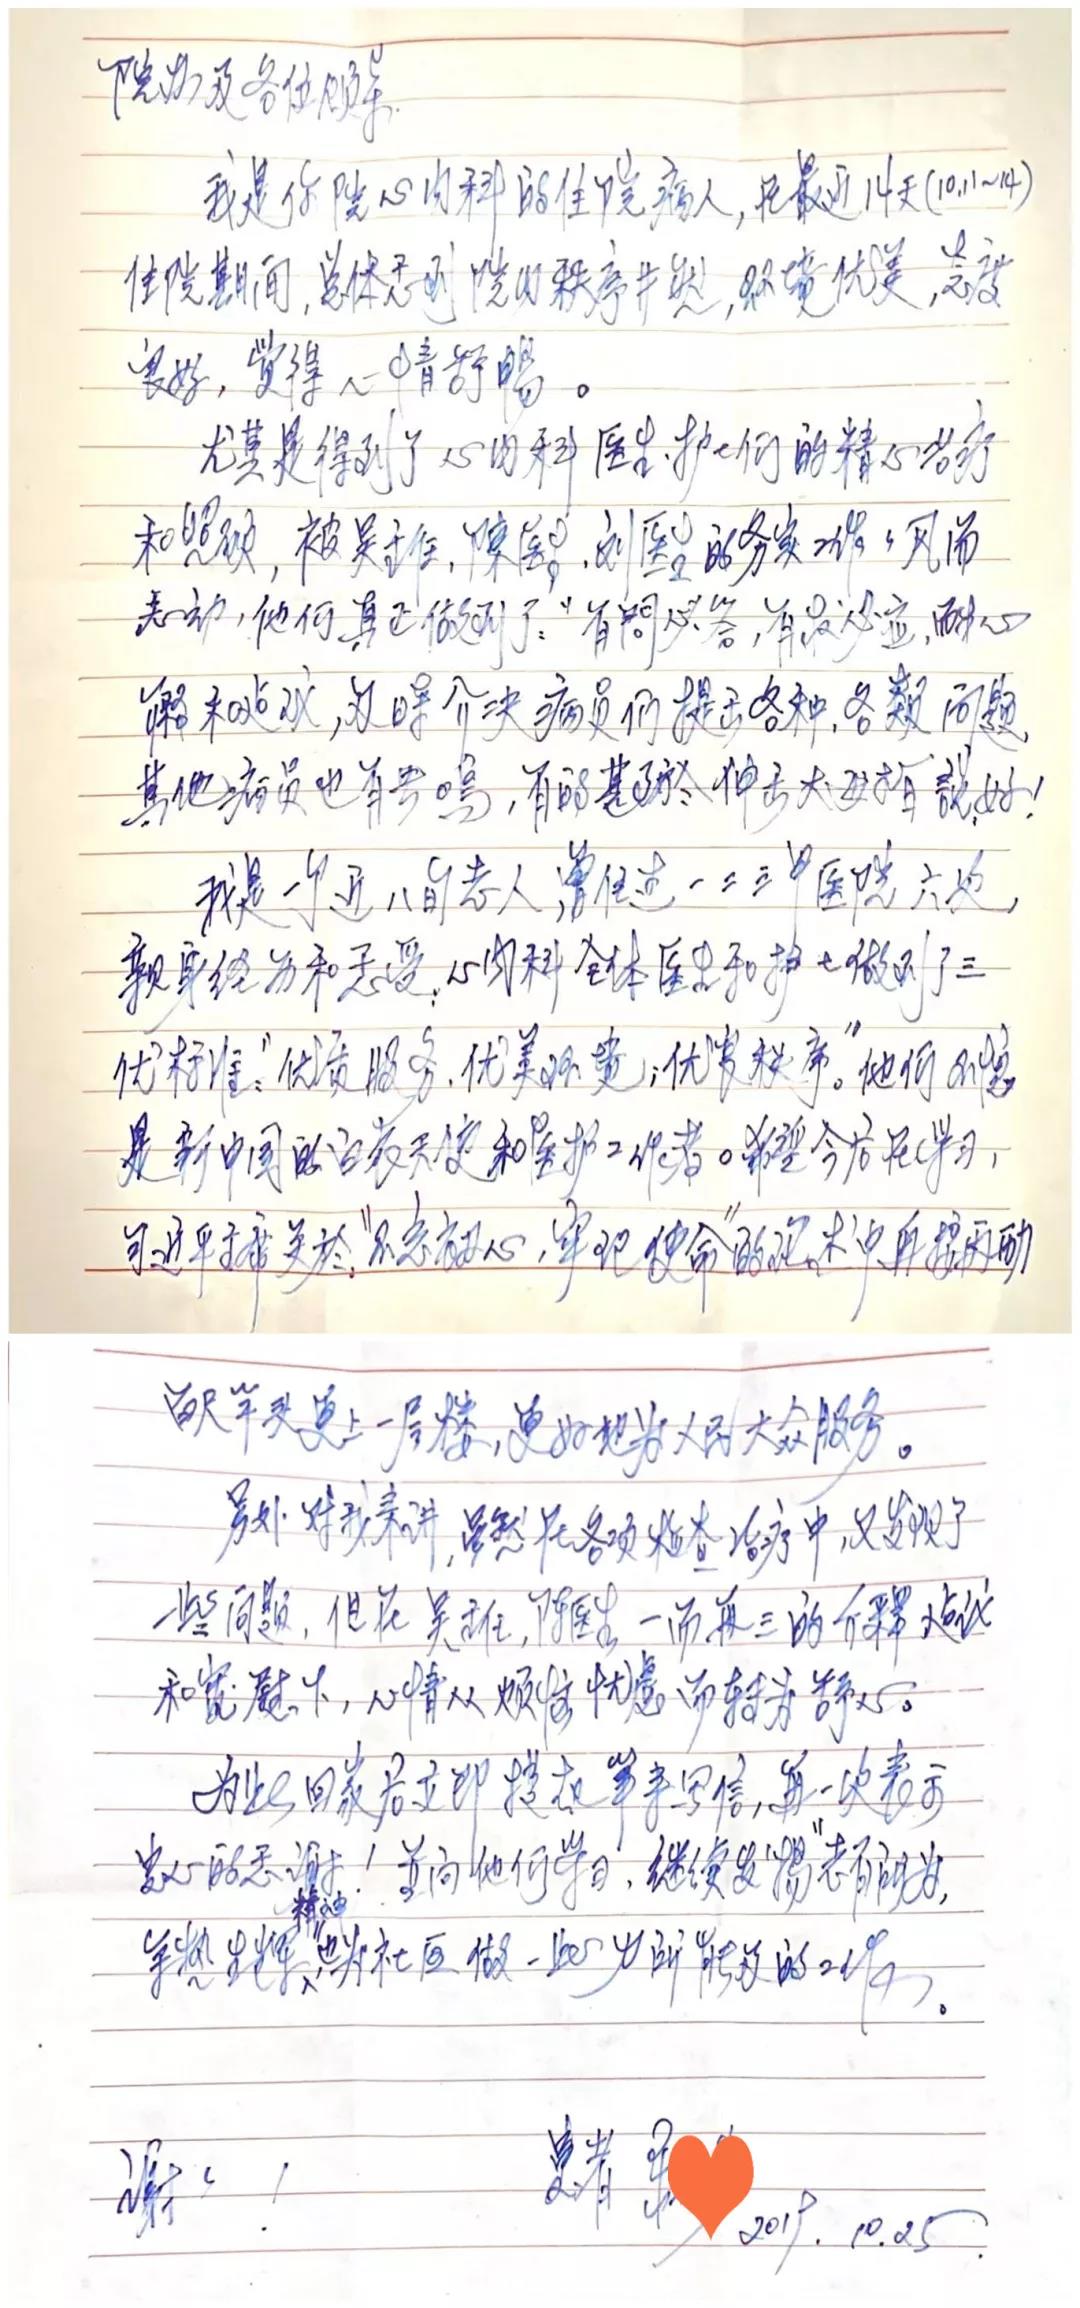 院办及各位领导
我是你院心内科的住院病人,在最近14天(10.11~14)
住院期间,总体感到院内秩序井然,环境优美,态度
良好,觉得心情舒暢。
尤其是得到了心内科医生、护士们的精心治疗
和照顾,被吴主任、陳医生、刘医生的务实工作作风而
感动,他们真正做到了:"有問必答,有求必应,耐心
解釋和,及時介决病员们提出各种、各類问题,
其他病员也有共鸣,有的甚至於伸出大母指説好!
我是一个近八旬老人,曾住过一二三甲医院六次,
親身经历和感受,心内科全体医生和护士做到了三
优标准:"优质服务,优美环境,优良秩序。"他们不愧
是新中国的白衣天使和医护工作者。希望今后在学习,
习近平主席关於"不忘初心,牢记使命"的中再接再励
百尺竿头更上一层楼,更好地为人民大众服务。
另外对我来讲,虽然在各项检查治疗中,又发现了
一些问题,但在吴主任,陈医生一而再三的介釋
和寬慰下,心情从烦恼忧慮而转为舒心。
为此回家后立即提起笔来写信,再一次表示
衷心的感謝!并向他们学习,继续发揚"老有所为,
精神
也为社区做一些力所能及的工作。
謝謝!
患者
2019.10.25